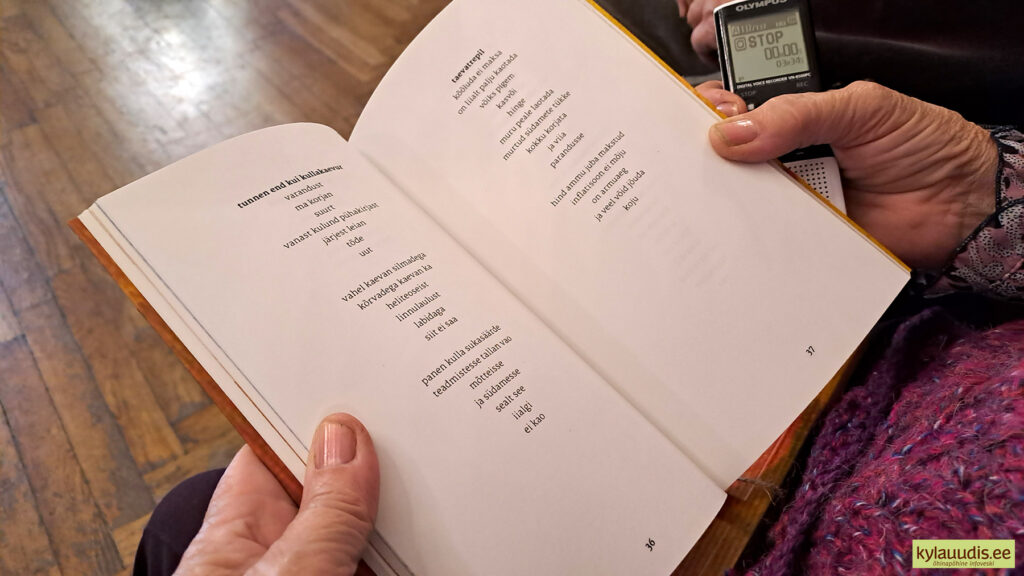 tunnen end kui kullakaevur
varandust
ma korjan
suurt
vanast kulund pühakirjast
järjest leian
tõde
uut
vahel kaevan silmadega
kõrvadega kaevan ka
heliteoseist
linnulaulust
labidaga
siit ei saa
panen kulla sukasäärde
teadmistesse tallan vao
mõtteisse
ja südamesse
sealt see
iialgi
ei kao
36
taevatrepil
kõõluda ei maksa
on liialt palju kaotada
võiks pigem
kasvõi
hinge
muru peale laotada
murtud südamete tükke
kokku korjata
ja viia
parandusse
hind ammu juba makstud
inflatsioon ei mõju
on armuaeg
ja veel võid jõuda
koju
37
OLYMPUS
STOP
DIGITAL VOICE RECORDER
STOP
REC
kylauudis.ee
õhinapõhine infoveski